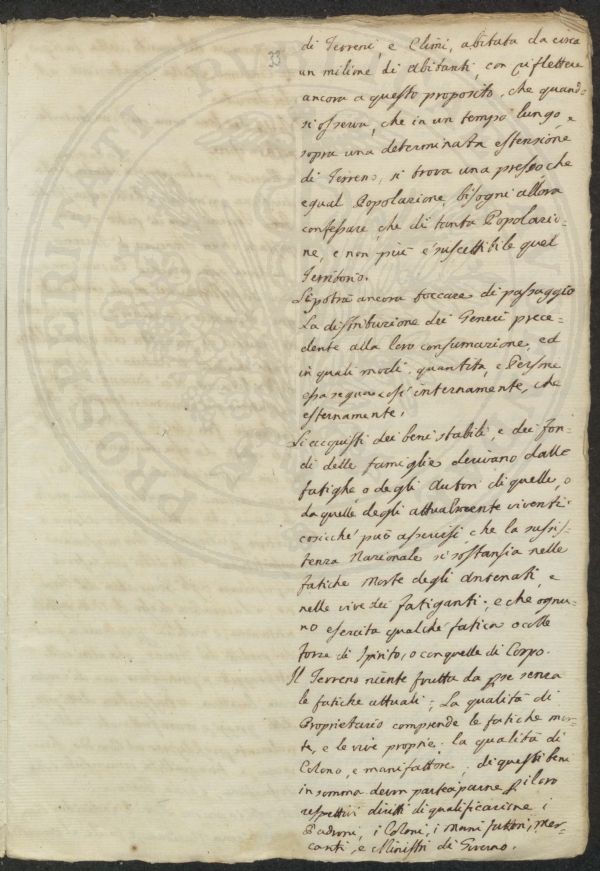 33
di Terreni, e Climi, abitata da circa
un milione di abitanti, con riflettere
ancora a questo proposito, che quand-
si osserva, che in un tempo lungo, e
sopra una determinata estensione
di Terreno, si trova una presso che
egual Popolazione, bisogni allora
confessare, che di tanta Popolazio-
ne, e non più è suscettibile quel
Territorio.
Si potrà ancora toccare di passaggio
La distribuzione dei Generi prece-
dente alla loro consumazione, ed
in quali modi, quantità, e Persone
essa segua così internamente, che
esternamente.
Gli acquisti dei beni stabili, e dei fon-
di delle famiglie derivano dalle
fatighe o degli Autori di quelle, o
da quelle degli attualmente viventi:
cosicché può asserirsi, che la sussis-
tenza Nazionale si sostansia nelle
fatiche morte degli Antenati, e
nelle vive dei fatiganti; e che ognu-
no esercita qualche fatica o colle
forze di Spirito, o con quelle di Corpo.
Il Terreno niente frutta da per se senza
le fatiche attuali; La qualità di
Proprietario comprende le fatiche mor-
te, e le vive proprie: la qualità di
Colono, e manifattore; di questi beni
in somma devon partecipare p i loro
respettivi diritti di qualificazione i
Padroni, i Coloni, i Manifattori, Mer-
canti, e Ministri di Governo.